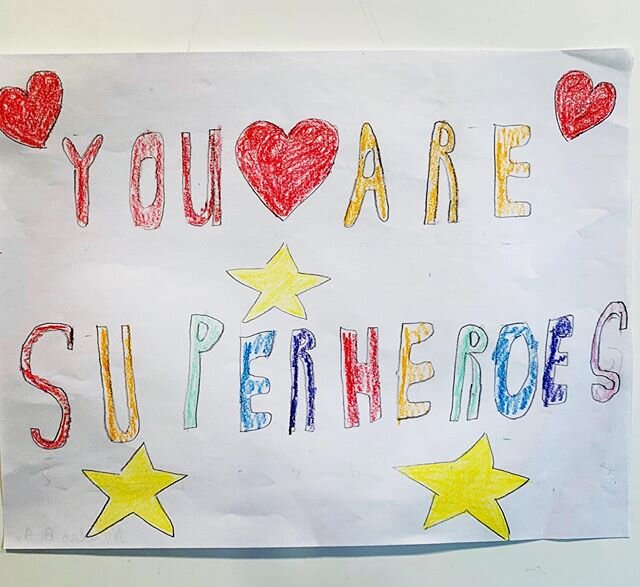 YOU ARE
SUPERHEROES